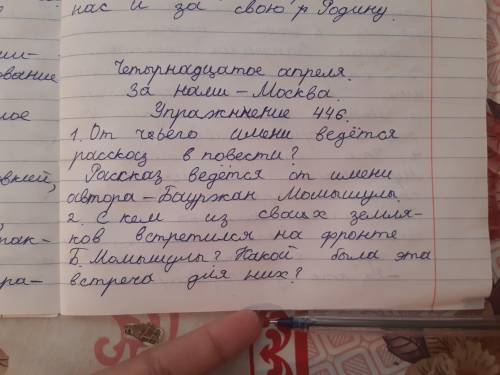 нас и за свою р Родину.
ши-
ование
ное
вкией,
пак-
ора-
Четырнадцатое апреля.
За нами – Москва.
Упражннение 446.
1. От чьего имени ведётся
рассказ в повести?
Рассказ ведётся от имени
автора – Бауржан Момышулы.
2. С кем из своих земля-
ков встретился на фронте
Б. Момышулы? Какой была эта
встреча для них?